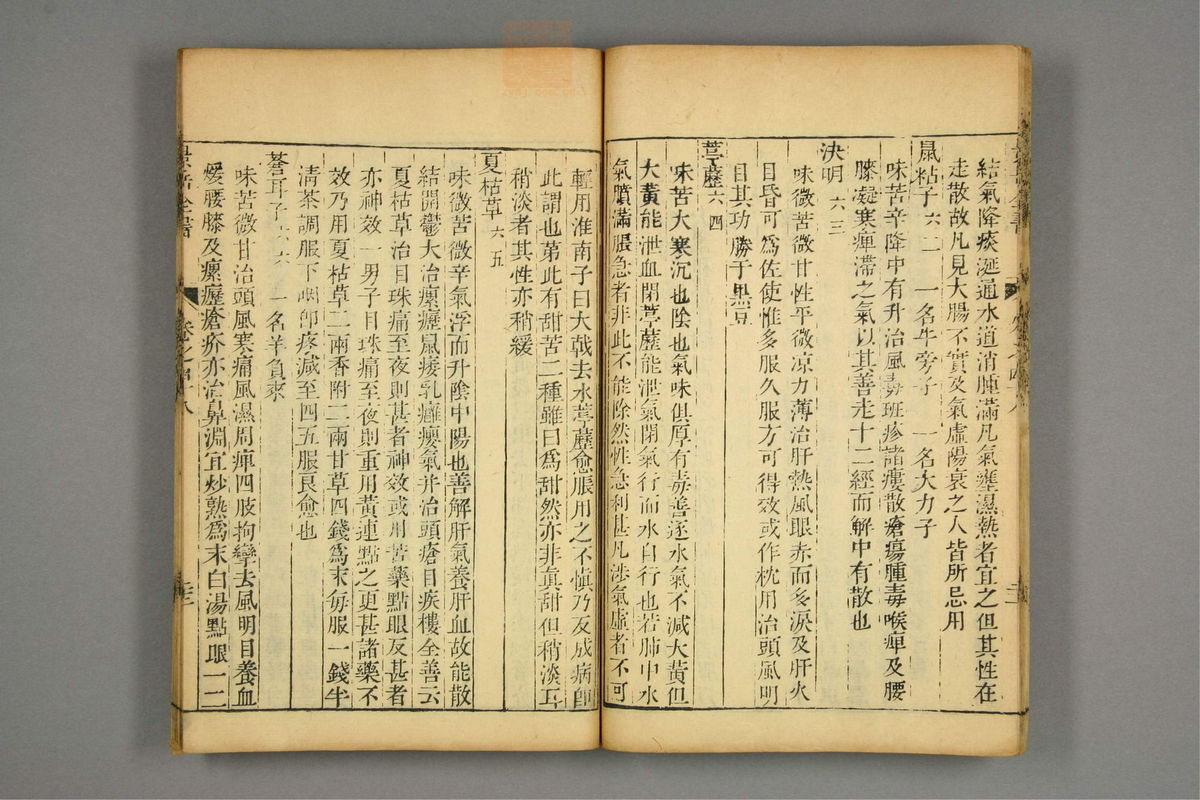 結氣降痰涎通水道消腫滿凡氣壅濕熱者宜之但其性在
走散故凡見大腸不實及氣虛陽衰之人皆所忌用
鼠粘子 六二 一名牛旁子 一名大力子
味苦辛降中有升治風毒班疹諸瘻散瘡瘍腫毒喉痺及腰
膝凝寒痺滯之氣以其善走十二經而解中有散也
決明 六三
味微苦微甘性平微凉力薄治肝熱風眼赤而多淚及肝火
目昏可為佐使惟多服久服方可得效或作枕用治頭風明
目其功勝于黑豆
葶藶 六四
味苦大寒沉也陰也氣味俱厚有毒善逐水氣不減大黃但
大黃能泄血閉葶藶能泄氣閉氣行而水自行也若肺中水
氣噴滿脹急者非此不能除然性急利甚凡涉氣虛者不可
輕用淮南子曰大戟去水葶藶愈脹用之不慎乃反成病即
此謂也第此有甜苦二種雖曰為甜然亦非真甜但稍淡耳
稍淡者其性亦稍緩
夏枯草 六五
味微苦微辛氣浮而升陰中陽也善解肝氣養肝血故能散
結開鬱大治瘰癧鼠瘻乳癰癭氣并治頭瘡目疾樓全善云
夏枯草治目珠痛至夜則甚者神效或用苦藥點眼反甚者
亦神效一男子目珠痛至夜則重用黃連點之更甚諸藥不
效乃用夏枯草二兩香附二兩甘草四錢為末每服一錢半
清茶調服下咽即疼減至四五服良愈也
蒼耳子 六六 一名羊負來
味苦微甘治頭風寒痛風濕周痺四肢拘攣去風明目養血
煖腰膝及瘰癧瘡疥亦治鼻淵宜炒熟為末白湯點服一二
景岳全書 卷之四十八